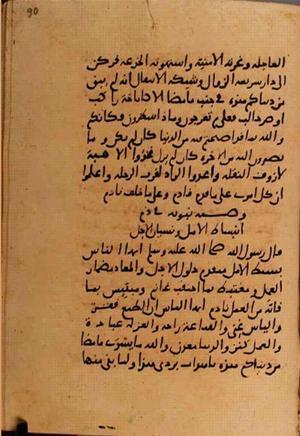 العاجلة وغرته الامنية واستهوته الخدعة فركن
الى دار سريعة الزوال وشيكة الانتقال انه لم يبق
من دنياكم هذه في جنب ما مضى الا كاناخة راكب
او صر حالب فعلى م تعرجون وماذا تنتظرون فكانكم
والله بما قد اصبحتم فيه من الدنيا كان لم يكن وما
تصيرون اليه من الاخرة كان لم يزل فخذوا الاهبة
لازوف النقلة واعدوا الزاد لقرب الرحلة واعلموا
ان كل امرئ على ما قدم قادم وعلى ما خلف نادم
وخطبته في ذم
انبساط الامل ونسيان الاجل
قال رسول الله صلى الله عليه وسلم ايها الناس
بسيط الامل متقدم حلول الاجل والمعاد مضمار
العمل ومغتبط بما احتقب غانم ومبتئس بما
فاته من العمل نادم ايها الناس ان الطمع فقر
والياس غنى والقناعة راحة والعزلة عبادة
والعمل كنز والدنيا معدن والله ما يسوى ما مضى
من دنياكم هذه باهداب بردي هذا ولما بقي منها